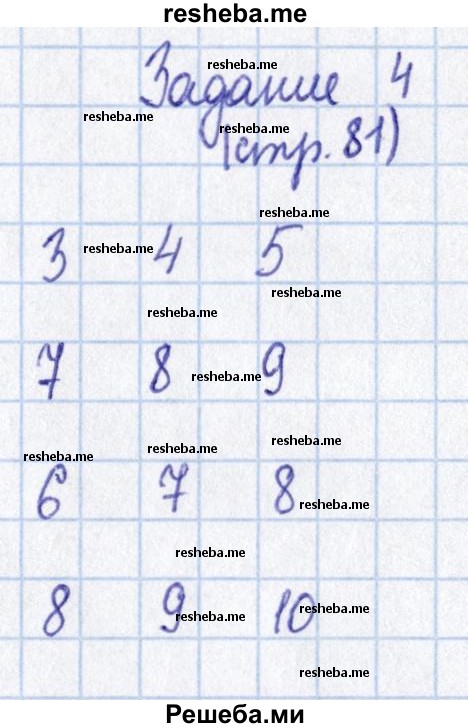 resheba.me
Задание 4
resheba.me
resheba.me
(стр. 81)
resheba.me
resheba.me
3 4 5
resheba.me
resheba.me
resheba.me
7 8 9
resheba.me
resheba.me
resheba.me
resheba.me
6 7 8
resheba.me
resheba.me
8 9 10
resheba.me
resheba.me
resheba.me
Решеба.ми